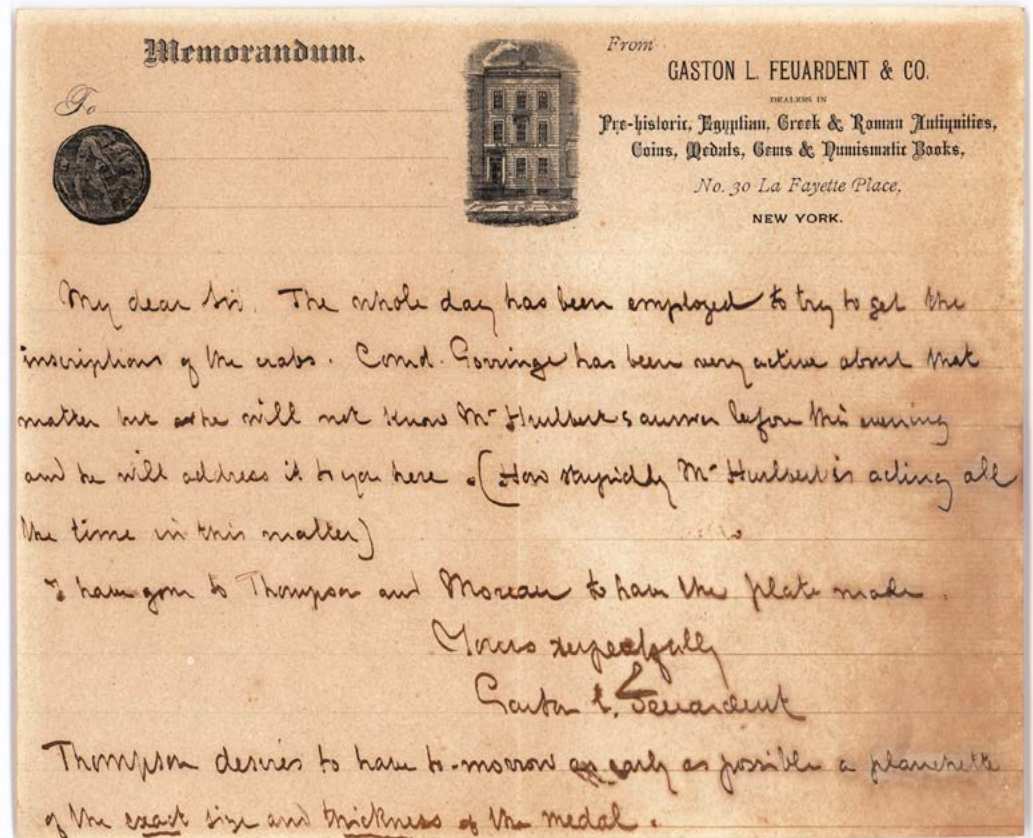 Memorandum.
To
From
GASTON L. FEUARDENT & CO.
DEALERS IN
Pre-historic, Egyptian, Greek & Roman Antiquities,
Coins, Medals, Gems & Numismatic Books,
No. 30 La Fayette Place,
NEW YORK.
My dear Sir. The whole day has been employed to try to get the
inscriptions of the crabs. Comd. Gorringe has been very active about that
matter but he will not know Mr Hurlbert's answer before this evening
and he will address it to you here. (How stupidly Mr Hurlbert is acting all
the time in this matter)
I have gone to Thompson and Moreau to have the plate made.
Yours respectfully
Gaston L. Feuardent
Thompson desires to have to-morrow as early as possible a planchette
of the exact size and thickness of the medal.